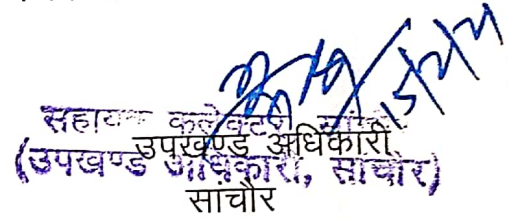 सहायक कलेक्टर
उपखण्ड अधिकारी
(उपखण्ड अधिकारी, सांचोर)
सांचौर